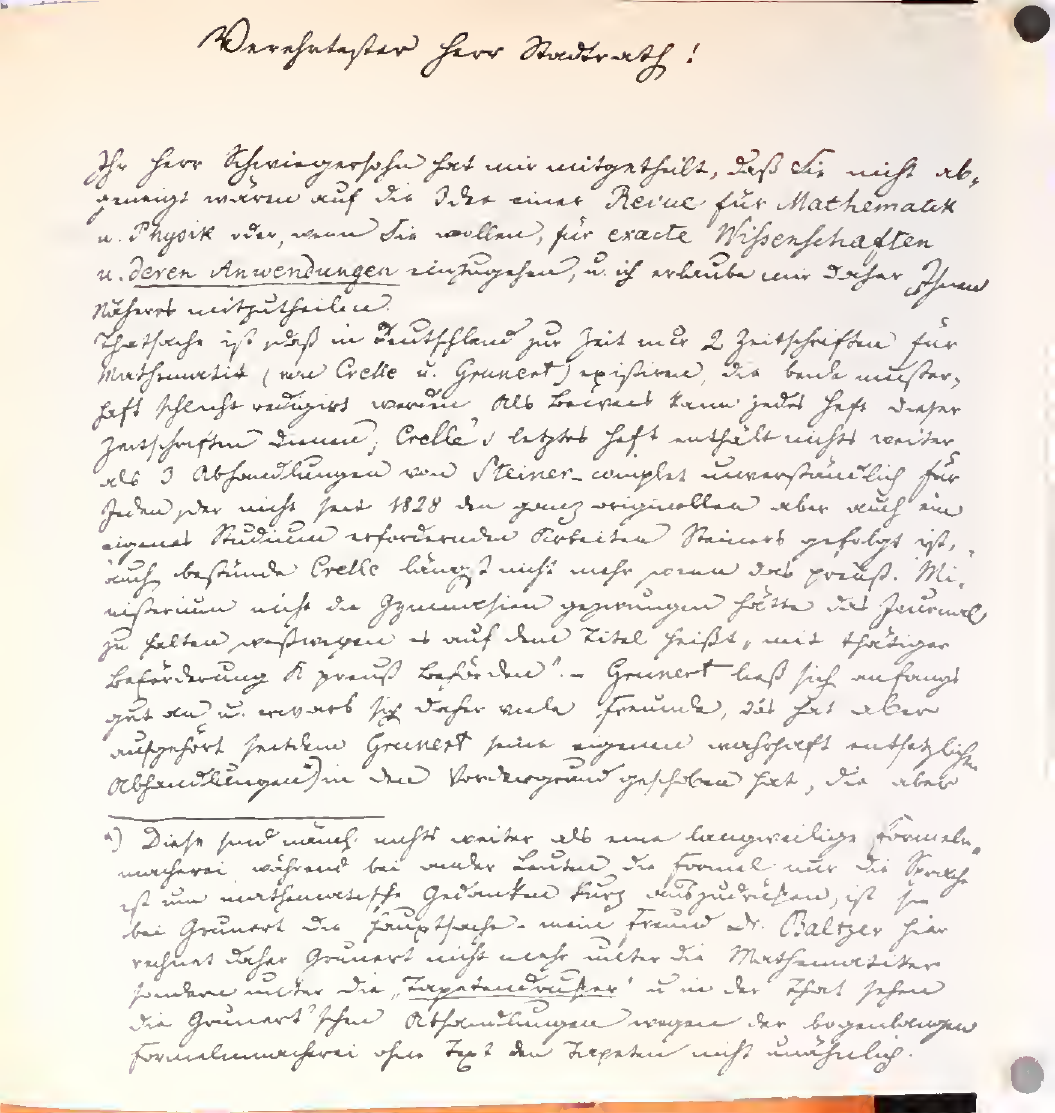 Verehrtester Herr Stadtrath!
Ihr Herr Schwiegersohn hat mir mitgetheilt, daß Sie nicht ab-
geneigt wären auf die Idee einer Revue für Mathematik
u. Physik oder, wenn Sie wollen, für exacte Wissenschaften
u. deren Anwendungen einzugehen, u. ich erlaube mir daher Ihnen
Näheres mitzutheilen.
Thatsache ist, daß in Deutschland zur Zeit nur 2 Zeitschriften für
Mathematik (von Crelle u. Grunert) existiren, die beide muster-
haft schlecht redigirt werden. Als Beweis kann jedes Heft dieser
Zeitschriften dienen; Crelle's letztes Heft enthält nichts weiter
als 3 Abhandlungen von Steiner - complet unverständlich für
Jeden, der nicht seit 1828 den ganz originellen aber auch ein
eigenes Studium erfordernden Arbeiten Steiners gefolgt ist,
auch bestünde Crelle längst nicht mehr, wenn das preuß. Mi-
nisterium nicht die Gymnasien gezwungen hätte das Journal
zu halten, weßwegen es auf dem Titel heißt „mit thätiger
Beförderung K preuß Behörden". - Grunert ließ sich anfangs
gut an u. erwarb sich daher viele Freunde, das hat aber
aufgehört seitdem Grunert seine eigenen wahrhaft entsetzlichen
Abhandlungen*) in den Vordergrund geschoben hat, die aber
*) Diese sind nämlich nichts weiter als eine langweilige Formeln-
macherei während bei ander Leuten die Formel nur die Sprache
ist um mathematische Gedanken kurz auszudrücken, ist sie
bei Grunert die Hauptsache - mein Freund Dr. Baltzer hier
rechnet daher Grunert nicht mehr unter die Mathematiker
sondern unter die „Tapetendrucker" u in der That sehen
die Grunert'schen Abhandlungen wegen der bogenlangen
Formelnmacherei ohne Text den Tapeten nicht unähnlich.